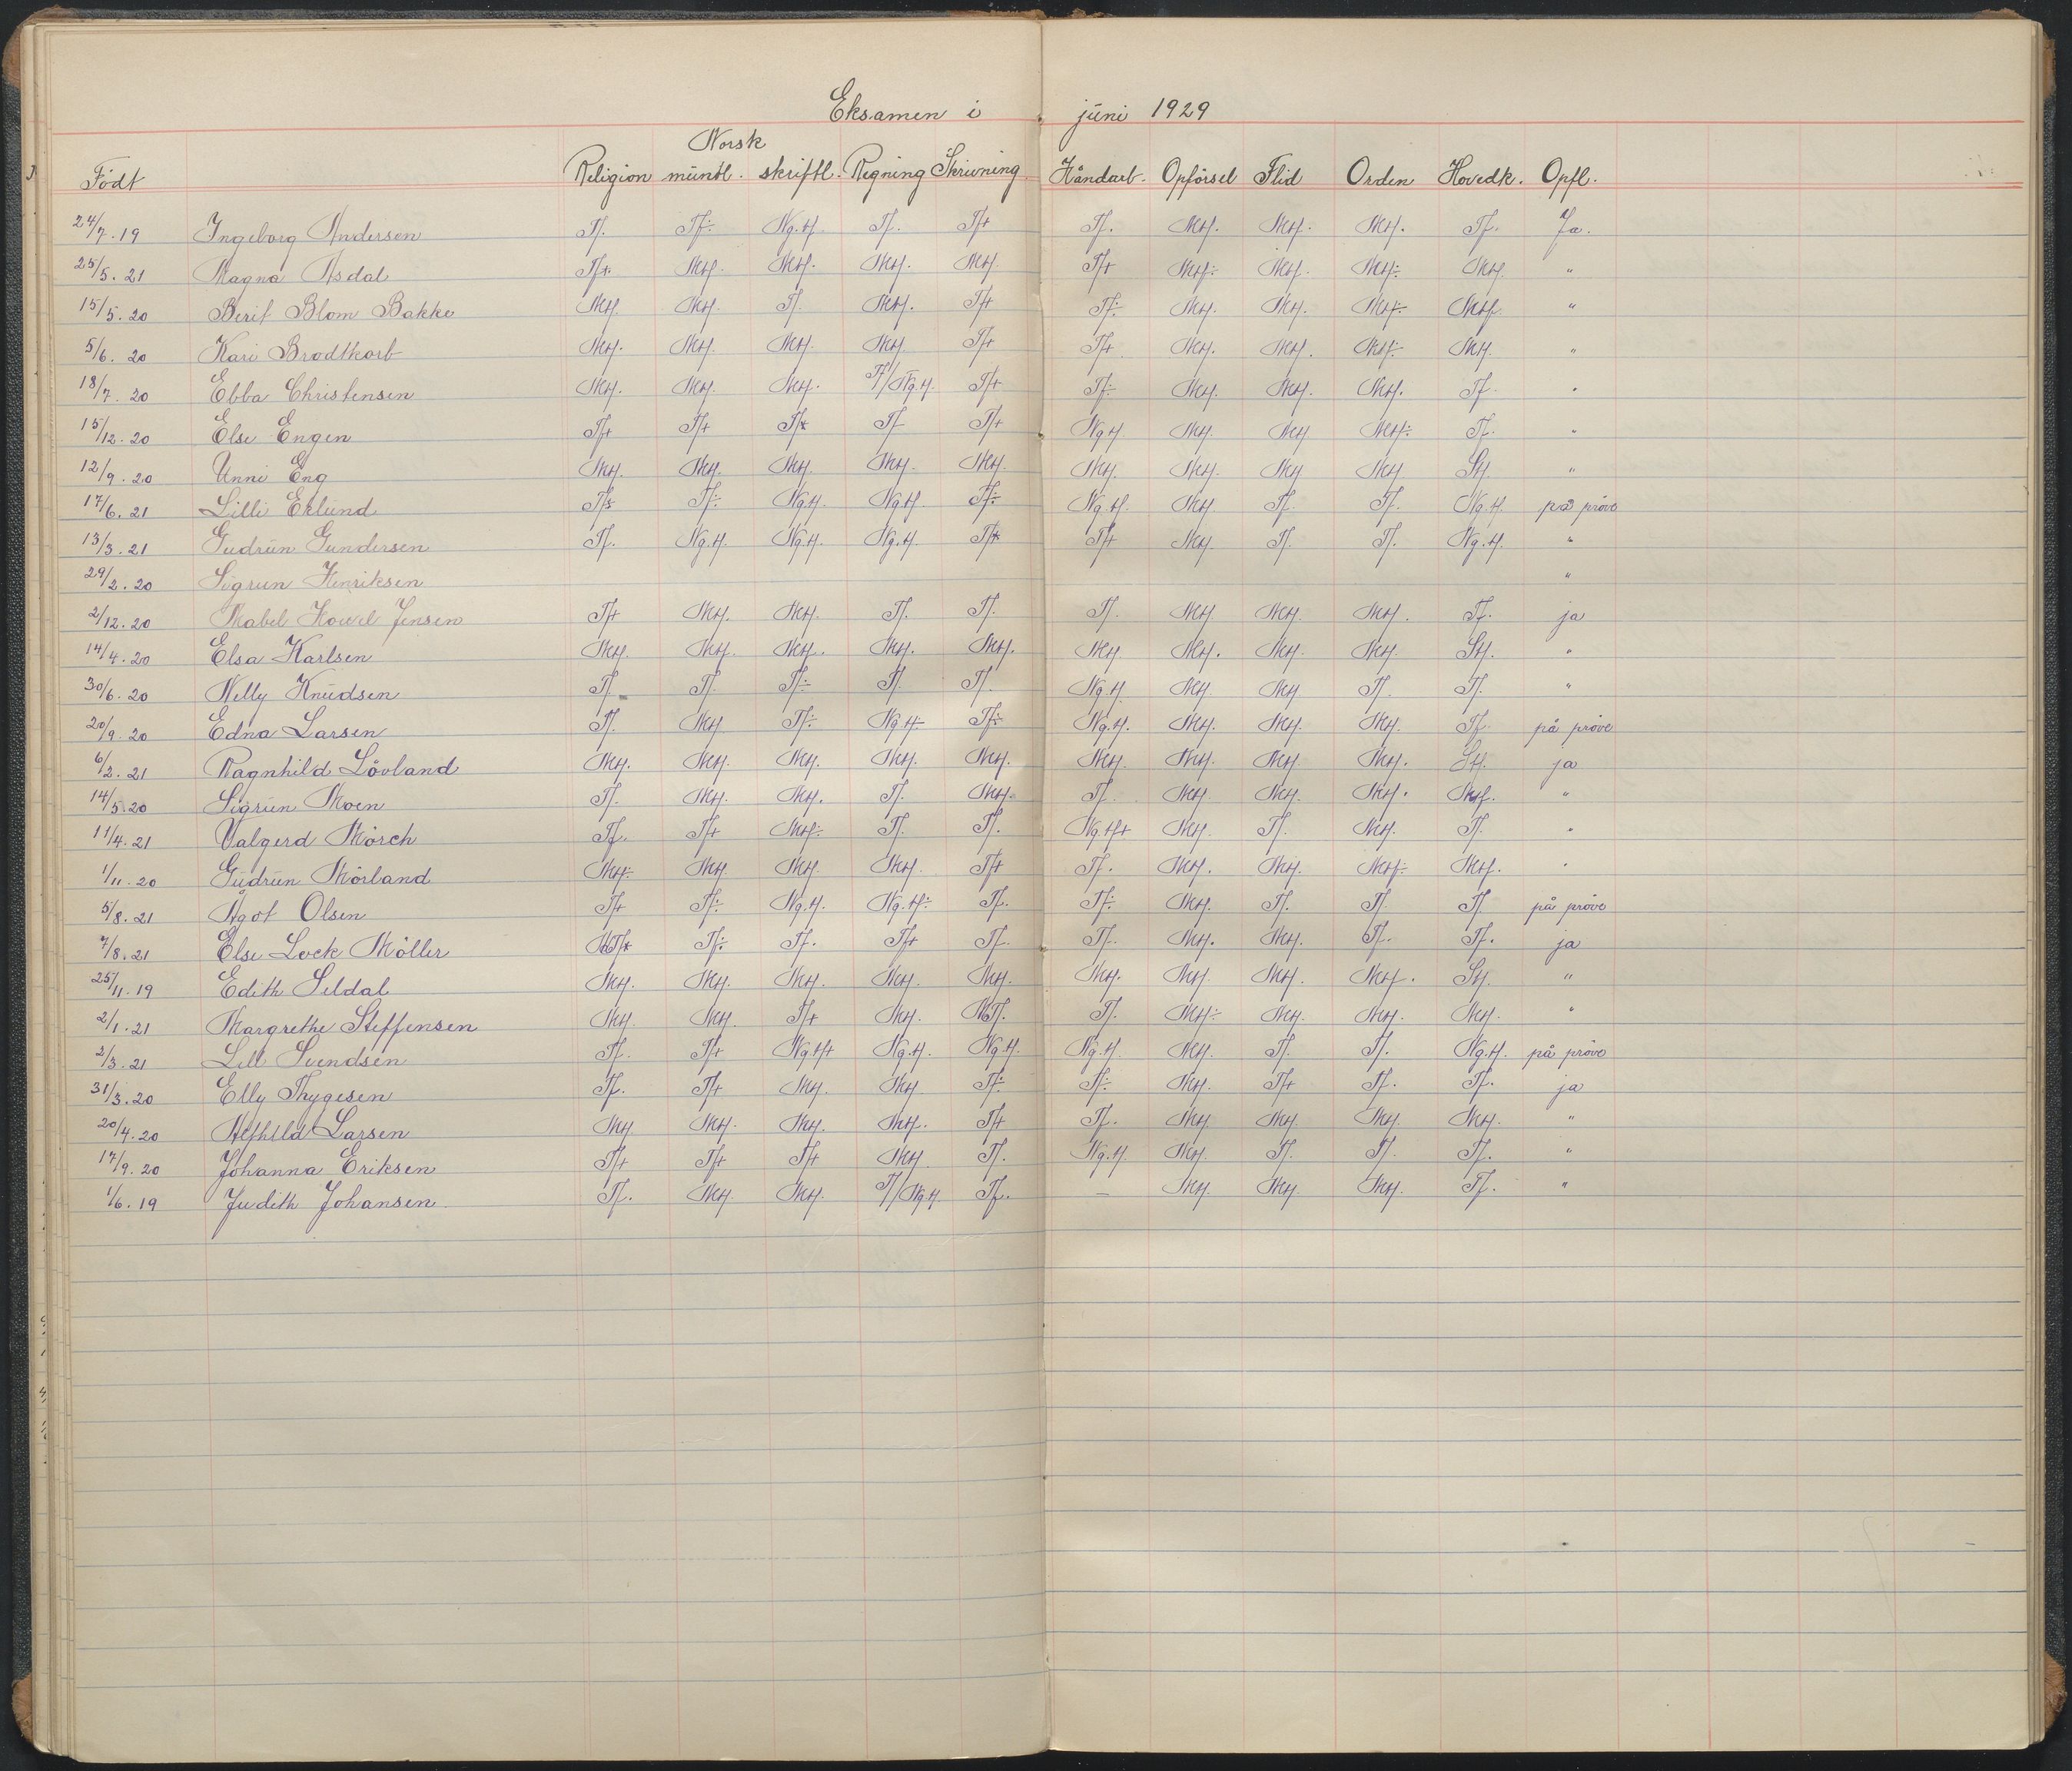 Eksamen i juni 1929
Norsk
Födt Religion muntl. skriftl. Regning Skrivning Håndarb. Opførsel Flid Orden Hovedk. Opfl.
24/7. 19 Ingeborg Andersen Tf. Tf÷ Ng.H. Tf. Tf+ Tf. MH. MH. MH. Tf. Ja.
25/5. 21 Magna Asdal Tf+ MH. MH. MH. MH. Tf+ MH÷ MH. MH÷ MH. "
15/5. 20 Berit Blom Bakke MH. MH. Tf. MH. Tf+ Tf÷ MH. MH. MH÷ MH. "
5/6. 20 Kari Brodtkorb MH. MH. MH. MH. Tf+ Tf+ MH. MH. MH÷ MH. "
18/7. 20 Ebba Christensen MH. MH. MH. Tf/Ng.H. Tf+ Tf÷ MH. MH. MH. Tf. "
15/12. 20 Else Engen Tf+ Tf+ Tf+ Tf Tf+ Ng.H. MH. MH MH÷ Tf. "
12/9. 20 Unni Eng MH. MH. MH. MH. MH. MH. MH. MH MH. SH. "
17/6. 21 Lilli Erlund Tf÷ Ng.H. Ng.H. Tf÷ Ng.H. MH Tf. Tf. Ng.H. på prøve
13/3. 21 Gudrun Gundersen Tf. Ng.H. Ng.H. Ng.H. Tf+ Tf+ MH. Tf. Tf. Ng.H. "
29/2. 20 Sigrun Henriksen "
2/12. 20 Mabel Jensen Tf+ MH. MH. Tf. Tf. Tf. MH. MH. MH. Tf. ja
14/4. 20 Elsa Karlsen MH. MH. MH. MH. MH. MH. MH. MH. MH. SH. "
30/6. 20 Nelly Knudsen Tf. Tf. Tf÷ Tf. Tf. Ng.H. MH. MH Tf. Tf. "
20/9. 20 Edna Larsen Tf. MH Tf÷ Ng.H÷ Tf÷ Ng.H. MH. MH. MH. Tf. på prøve
6/2. 21 Ragnhild Lövland MH. MH. MH. MH. MH. MH. MH. MH MH. SH. ja
14/5. 20 Sigrun Moen Tf. MH. MH. Tf. MH. Tf. MH. MH. MH. MH. "
11/4. 21 Valgerd Mörch Tf. Tf+ MH÷ Tf. Tf. Ng.H+ MH. Tf. MH. Tf. "
1/11. 20 Gudrun Mörland MH÷ MH. MH. MH. Tf+ Tf. MH. MH. MH÷ MH. "
5/8. 21 Ågot Olsen Tf+ Tf÷ Ng.H. Ng.H÷ Tf. Tf÷ MH. Tf. Tf. Tf. på prøve
7/8. 21 Else Lock Möller Tf+ Tf÷ Tf. Tf+ Tf. Tf. MH. MH. Tf. Tf. ja
25/11. 19 Edith Seldal MH. MH. MH. MH. MH. MH. MH. MH. MH. SH. "
2/1. 21 Margrethe Steffensen MH. MH. Tf+ MH. Tf. Tf. MH÷ MH. MH. MH. "
2/3. 21 Lill Svendsen Tf. Tf+ Ng.H+ Ng.H. Ng.H. Ng.H. MH. Tf. Tf. Ng.H. på prøve
31/3. 20 Elly Thygesen Tf. Tf+ MH. MH Tf÷ Tf÷ MH. Tf+ Tf. Tf. ja
20/4. 20 Alfhild Larsen MH. MH. MH. MH. Tf+ Tf. MH. MH. MH. MH. "
17/9. 20 Johanna Eriksen Tf+ Tf+ Tf+ MH. Tf. Ng.H. MH. Tf. Tf. Tf. "
1/6. 19 Judith Johansen Tf. MH. MH. Tf/Ng.H. Tf. — MH. MH. MH. Tf. "